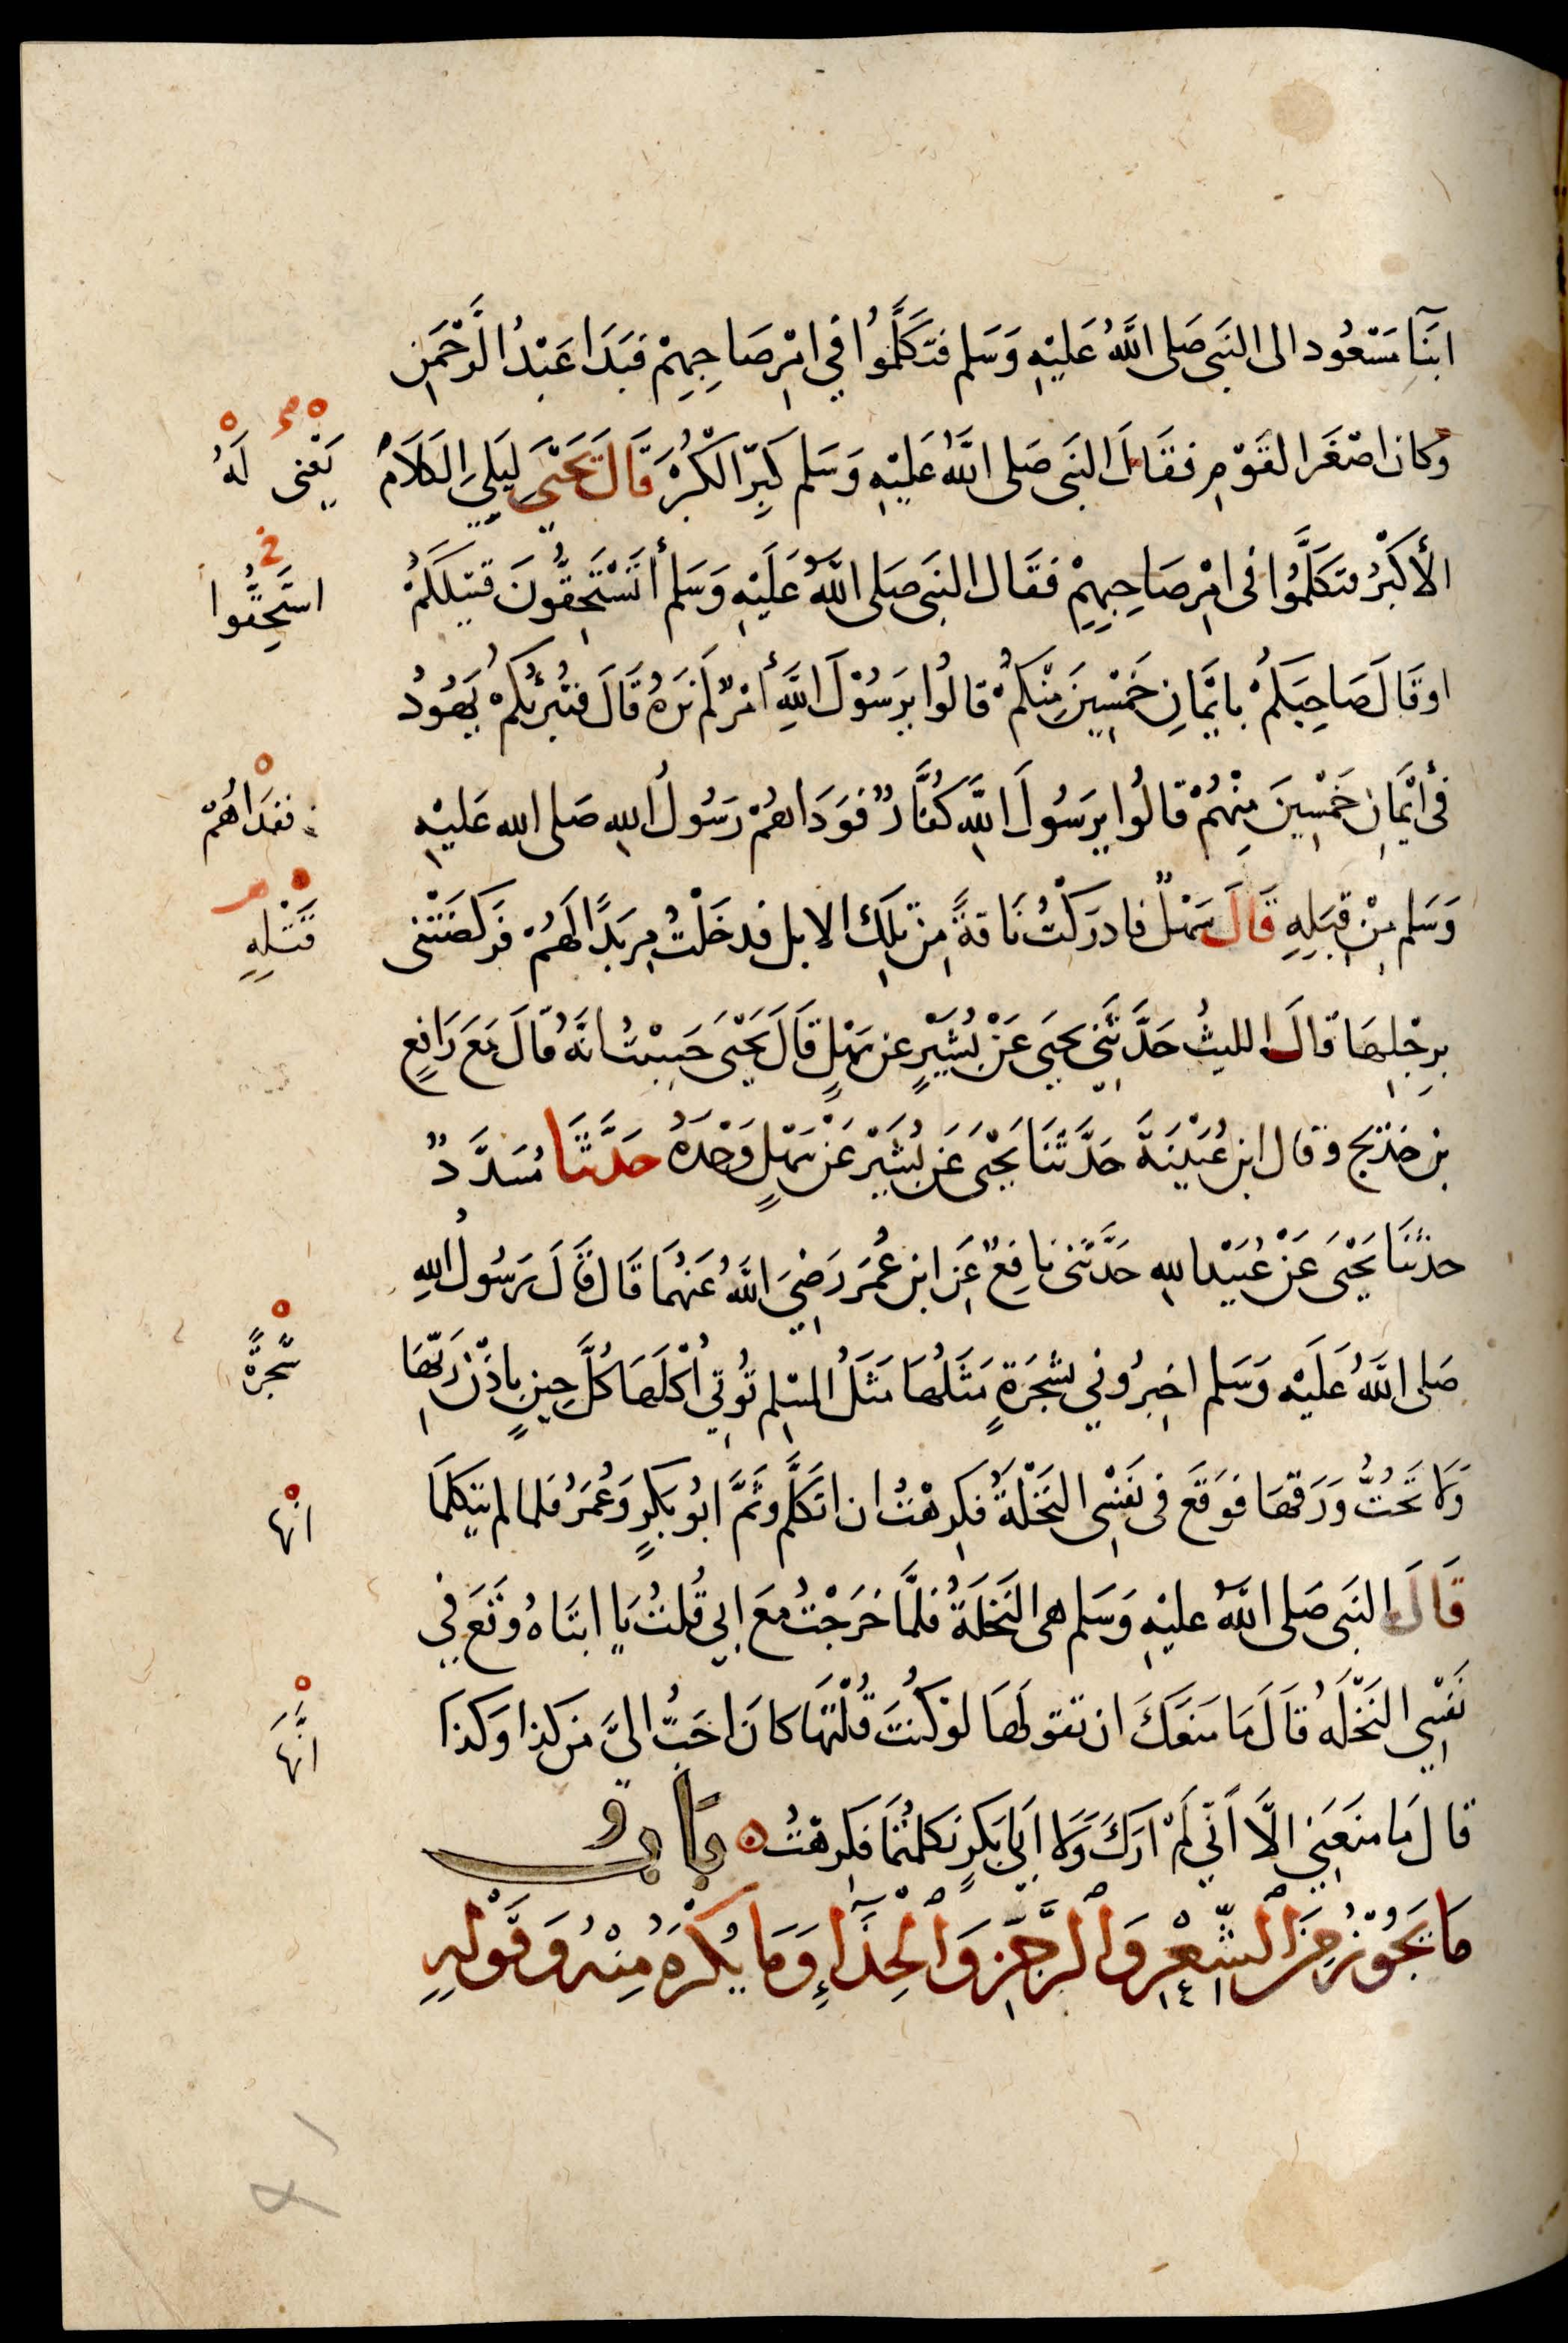 ابْنَا مَسْعُود الى النَبى صَلى اللَّهُ عَليْهِ وَسَلم فتَكَلَّمُوا في امْرِ صَاحِبِهِمْ فبَدَا عَبْدُ الرَّحْمَن
وَكان اصْغَر القَوْمِ فقَالَ النَبى صَلى اللَّهُ عَليْهِ وَسَلم كَبِّر الكُبْرَ قَالَ يَحْيَى لِيَلِيَ الكَلَامَ
يَعْنى لَهُ
الأكْبَرُ فتكَلَّمُوا فى امْرِ صَاحِبِهِمْ فقَال النَبى صَلى اللَّهُ عَلَيْهِ وَسَلم أتَسْتَحِقُّونَ قتيلَكُمْ
استَحِقُّوا
او قَالَ صَاحِبَكُمْ بايْمَانِ خَمْسِينَ مِنْكُمْ قالُوا يرَسُوْلَ اللَّهِ أمْرٌ لَمْ نَرَهُ قَالَ فتُبْرِئُكُمْ يَهُودُ
فى أيْمَانِ خَمْسِينَ مِنْهُمْ قالُوا يرَسُولَ اللَّهِ كُفَّارٌ فوَدَاهُمْ رَسُولُ اللهِ صَلى الله عَليْهِ
ففدَاهُمْ
وَسَلم مِنْ قِبَلِهِ قَالَ سَهْلٌ فادرَكْتُ نَاقةً مِنْ تلِكَ الابل فدخَلَتْ مِرْبَدًا لَهُمْ فرَكَضَتْنى
قَتْلِهِ
برِجْلِهَا قالَ الليثُ حَدَّثَنِي يحيَى عَنْ بُشَيْرٍ عن سَهْلٍ قَالَ يَحْيَى حَسِبْتُ انَّهُ قَالَ مَعَ رَافِعِ
بْنِ خَدِيج وقال ابنُ عُيَيْنَةَ حَدَّثَنَا يَحْيَى عَن بُشَيْرٍ عَنْ سَهْلٍ وَحْدَهُ حَدَّثَنَا مُسَدَّدٌ
حدثنَا يَحْيَى عَنْ عُبَيْدالله حَدَّثَنى نَافِعٌ عَنِ ابن عُمَرَ رَضِيَ اللَّهُ عَنْهُمَا قَال قَالَ رَسُولُ اللهِ
صَلى اللَّهُ عَلَيْهِ وَسَلم اخبِرُوني بشَجَرَةٍ مَثَلُهَا مَثَلُ المسْلِم تُوتِي أُكْلَهَا كُلَّ حِينٍ باذْنِ رَبِّهَا
شَجَرَةً
وَلَا تَحُتُّ وَرَقَهَا فوَقَعَ فى نَفْسِى النَخْلَةُ فكَرِهْتُ ان اتكَلَّم وثَمَّ ابُو بَكرٍ وَعُمَرُ فلما لم يتكلمَا
انها
قَالَ النَبى صَلى اللَّهُ عليْهِ وَسَلم هى النَخْلَةُ فلمَّا خَرَجْتُ مَعَ ابِي قُلتُ يَا ابَتَاهُ وقَعَ فِي
نَفْسِي النَخْلَة قَالَ مَا مَنَعَكَ ان تقولَهَا لو كُنتَ قُلْتَهَا كانَ احَبُّ الىَّ مِن كذا وَكذَا
انَّهَا
قالَ مَا منَعَنِي الَّا أنِّي لَمْ ارَكَ وَلَا ابَا بَكرٍ تكلمْتُمَا فكَرِهْتُ بَابُ
مَا يَجُوْزُ مِنَ الشِّعْرِ وَالرَّجَزِ وَالحِدَآءِ وَمَا يُكْرَهُ مِنْهُ وَقَوْلِهِ